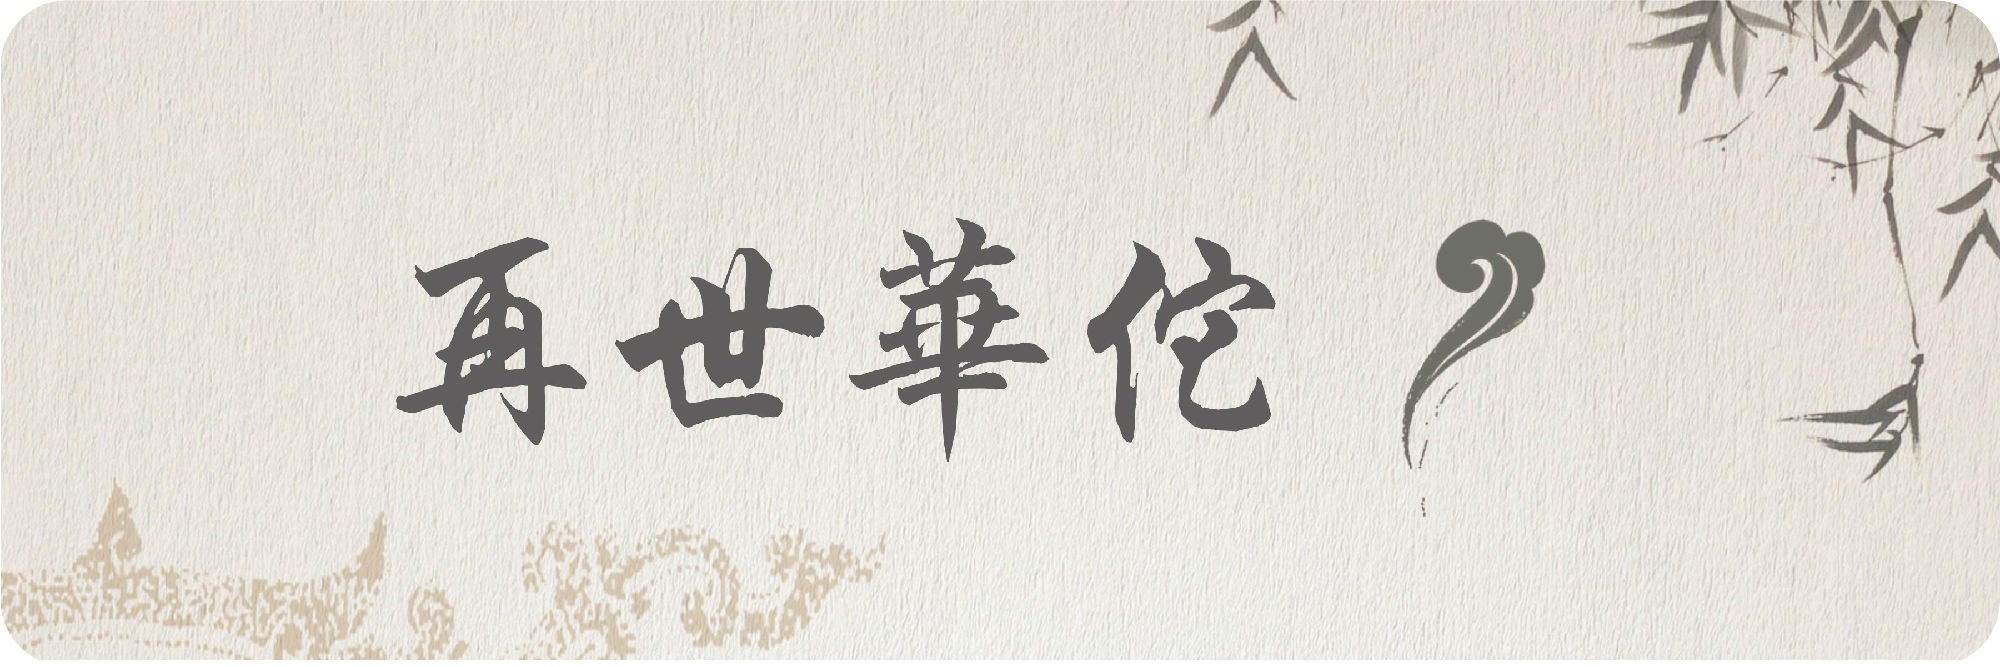 再世華佗